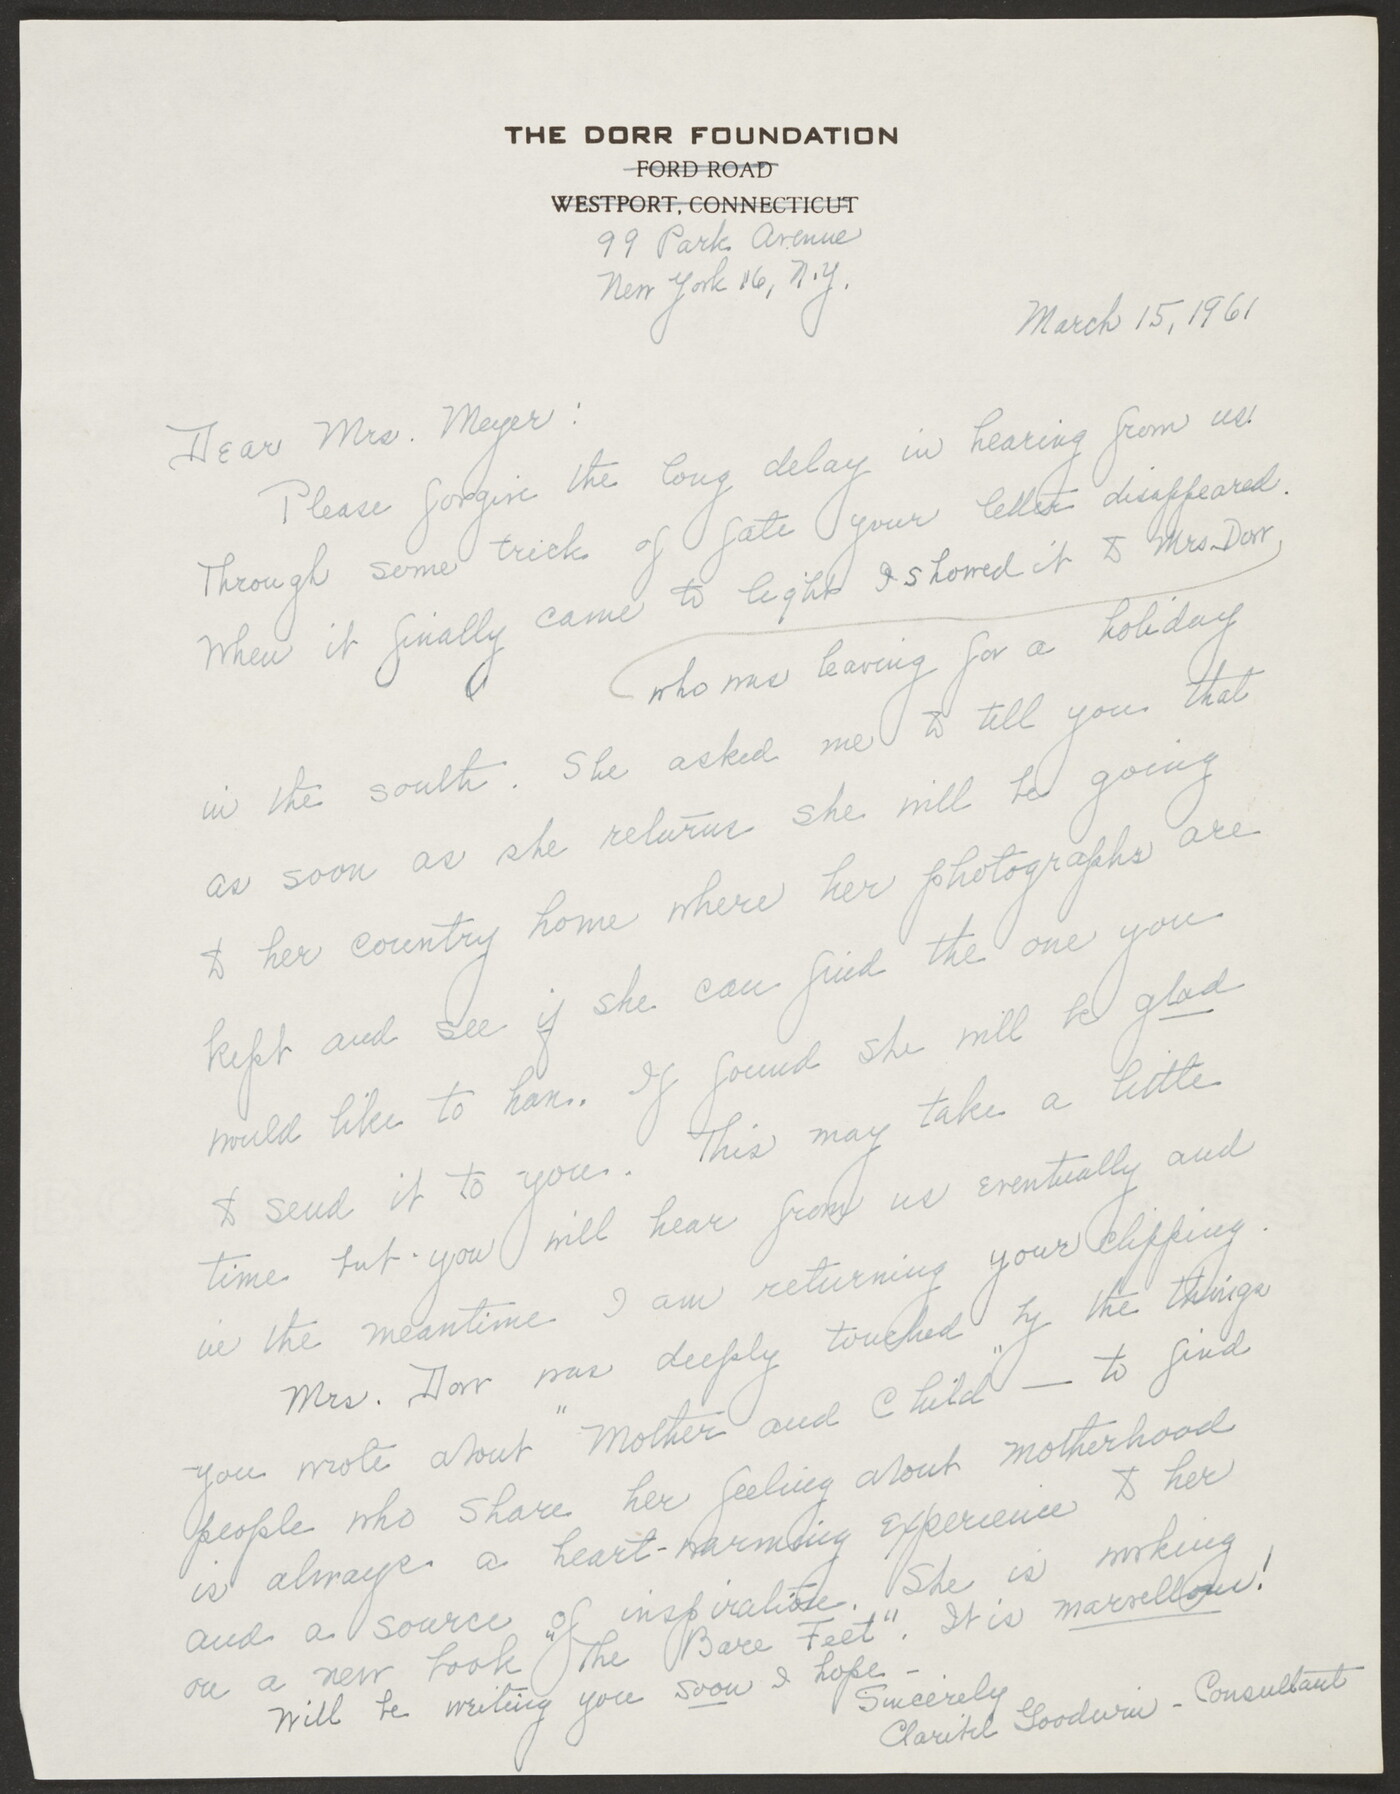 THE DORR FOUNDATION
FORD ROAD
WESTPORT, CONNECTICUT
99 Park Avenue
New York 16, N.Y.
March 15, 1961
Dear Mrs. Meyer:
Please forgive the long delay in hearing from us!
Through some trick of fate your letter disappeared.
When it finally came to light I showed it to Mrs. Dorr
who was leaving for a holiday
in the south. She asked me to tell you that
as soon as she returns she will be going
to her country home where her photographs are
kept and see if she can find the one you
would like to have. If found she will be glad
to send it to you. This may take a little
time but you will hear from us eventually and
in the meantime I am returning your clipping.
Mrs. Dorr was deeply touched by the things
you wrote about "Mother and Child" — to find
people who share her feeling about motherhood
is always a heart-warming experience to her
and a source of inspiration. She is working
on a new book "The Bare Feet". It is marvellous!
Will be writing you soon I hope -
Sincerely
Goodwin - Consultant